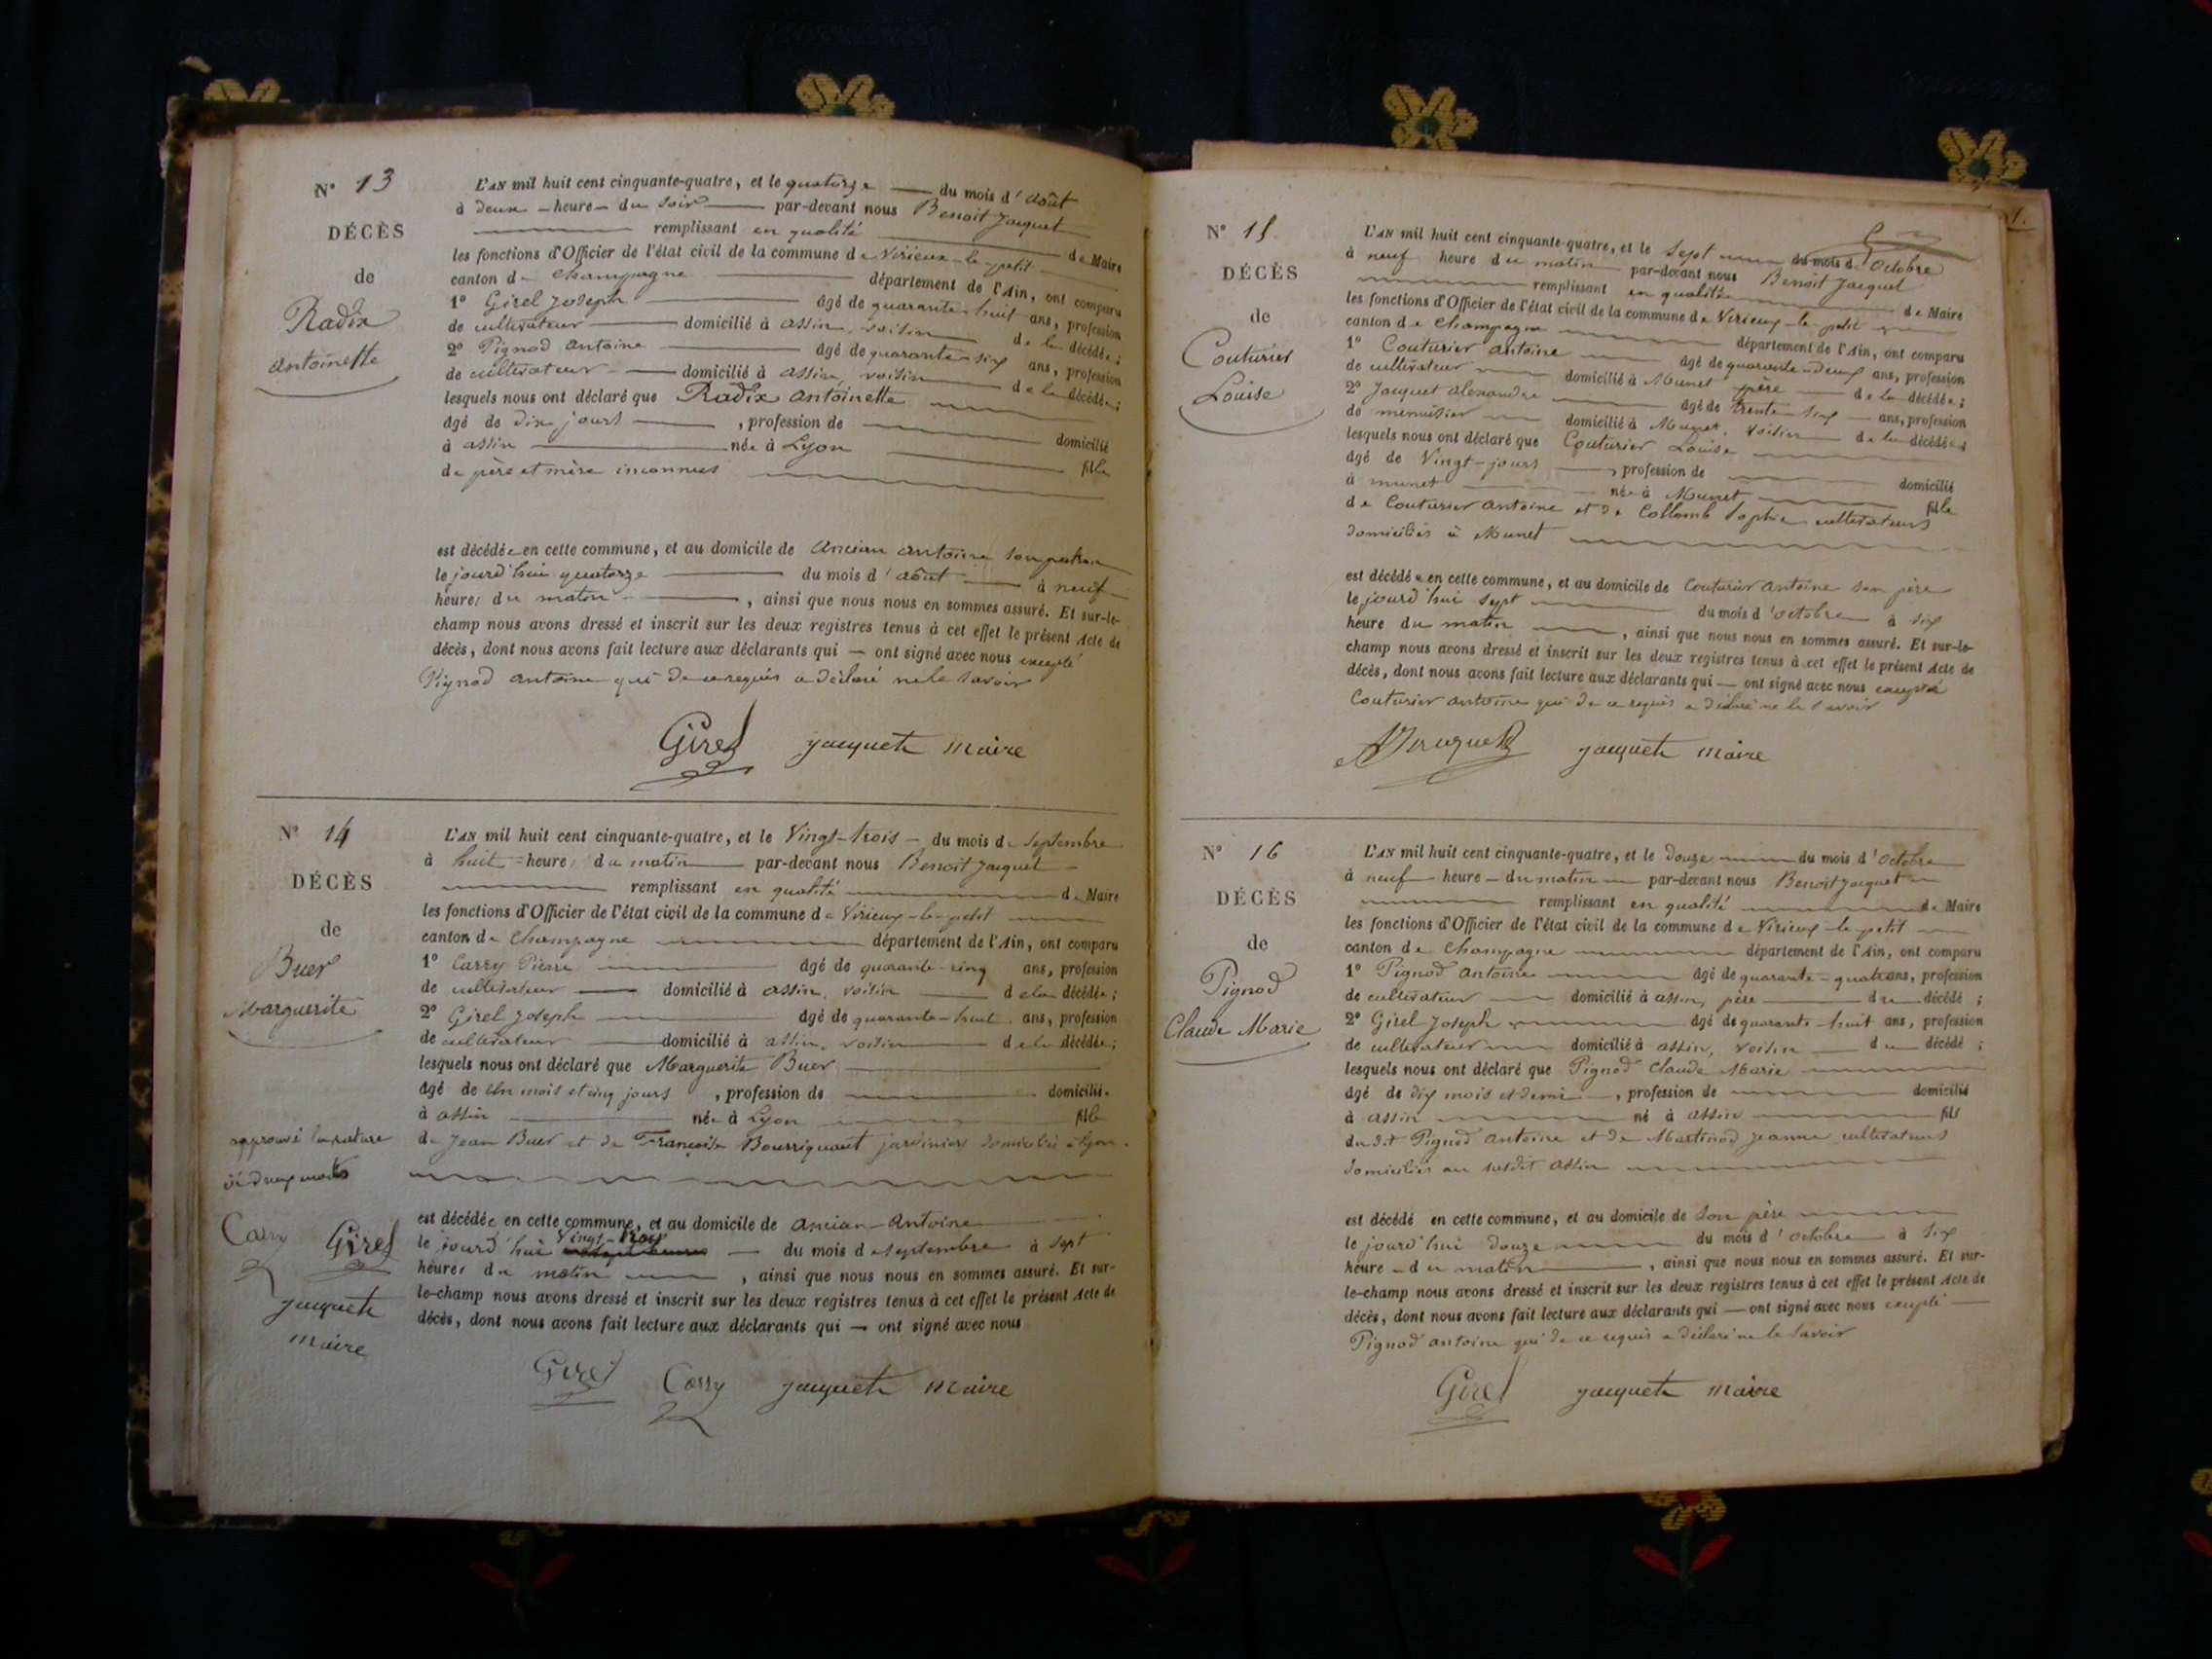 N° 13
DÉCÈS
de
Radix
antoinette
L'AN mil huit cent cinquante-quatre, et le quatorze du mois d'août
à deux heure du soir par-devant nous Benoit Jacquet
remplissant en qualité de Maire
les fonctions d'Officier de l'état civil de la commune de Virieux-le-petit
canton de Champagne département de l'Ain, ont comparu
1° Girel Joseph âgé de quarante huit ans, profession
de cultivateur domicilié à assin, voisin de la décédée;
2° Pignod antoine âgé de quarante-six ans, profession
de cultivateur domicilié à assin, voisin de la décédée;
lesquels nous ont déclaré que Radix antoinette
âgé de dix jours, profession de domicilié
à assin née à Lyon fille
de père et mère inconnus
est décédée en cette commune, et au domicile de ancian antoine son patron
le jourd'hui quatorze du mois d'août à neuf
heures du matin, ainsi que nous nous en sommes assuré. Et sur-le-
champ nous avons dressé et inscrit sur les deux registres tenus à cet effet le présent Acte de
décès, dont nous avons fait lecture aux déclarants qui — ont signé avec nous excepté
Pignod antoine qui de ce requis a déclaré ne le savoir
Girel jacquet maire
N° 14
DÉCÈS
de
Buer
Marguerite
L'AN mil huit cent cinquante-quatre, et le Vingt-trois du mois de septembre
à huit heure du matin par-devant nous Benoit Jacquet
remplissant en qualité de Maire
les fonctions d'Officier de l'état civil de la commune de Virieux-le-petit
canton de Champagne département de l'Ain, ont comparu
1° Carry Pierre âgé de quarante-cinq ans, profession
de cultivateur domicilié à assin, voisin de la décédée;
2° Girel Joseph âgé de quarante-huit ans, profession
de cultivateur domicilié à assin, voisin de la décédée;
lesquels nous ont déclaré que Marguerite Buer
âgé de Un mois et cinq jours, profession de domicilié
à assin née à Lyon fille
de Jean Buer et de Françoise Bourriquant jardiniers domiciliés à Lyon
est décédée en cette commune, et au domicile de ancian-antoine
le jourd'hui Vingt-trois du mois de septembre à sept
heures du matin, ainsi que nous nous en sommes assuré. Et sur-
le-champ nous avons dressé et inscrit sur les deux registres tenus à cet effet le présent Acte de
décès, dont nous avons fait lecture aux déclarants qui — ont signé avec nous
Girel Carry jacquet maire
approuvé la rature
de deux mots
Carry Girel
jacquet
maire
N° 15
DÉCÈS
de
Couturier
Louise
L'AN mil huit cent cinquante-quatre, et le sept du mois d'octobre
à neuf heure du matin par-devant nous Benoit Jacquet
remplissant en qualité de Maire
les fonctions d'Officier de l'état civil de la commune de Virieux-le-petit
canton de Champagne département de l'Ain, ont comparu
1° Couturier antoine âgé de quarante-deux ans, profession
de cultivateur domicilié à Munet père de la décédée;
2° Jacquet alexandre âgé de trente-six ans, profession
de menuisier domicilié à Munet, voisin de la décédée;
lesquels nous ont déclaré que Couturier Louise
âgé de Vingt-jours, profession de domicilié
à munet née à Munet fille
de Couturier antoine et de Collomb sophie cultivateurs
domiciliés à Munet
est décédée en cette commune, et au domicile de Couturier antoine son père
le jourd'hui sept du mois d'octobre à six
heure du matin, ainsi que nous nous en sommes assuré. Et sur-le-
champ nous avons dressé et inscrit sur les deux registres tenus à cet effet le présent Acte de
décès, dont nous avons fait lecture aux déclarants qui — ont signé avec nous excepté
Couturier antoine qui de ce requis a déclaré ne le savoir
jacquet maire
N° 16
DÉCÈS
de
Pignod
Claude Marie
L'AN mil huit cent cinquante-quatre, et le douze du mois d'octobre
à neuf heure du matin par-devant nous Benoit Jacquet
remplissant en qualité de Maire
les fonctions d'Officier de l'état civil de la commune de Virieux-le-petit
canton de Champagne département de l'Ain, ont comparu
1° Pignod antoine âgé de quarante-quatre ans, profession
de cultivateur domicilié à assin, père du décédé;
2° Girel Joseph âgé de quarante-huit ans, profession
de cultivateur domicilié à assin, voisin du décédé;
lesquels nous ont déclaré que Pignod Claude Marie
âgé de dix mois et demi, profession de domicilié
à assin né à assin fils
du dit Pignod antoine et de Martinod jeanne cultivateurs
domiciliés au susdit assin
est décédé en cette commune, et au domicile de son père
le jourd'hui douze du mois d'octobre à six
heure du matin, ainsi que nous nous en sommes assuré. Et sur-
le-champ nous avons dressé et inscrit sur les deux registres tenus à cet effet le présent Acte de
décès, dont nous avons fait lecture aux déclarants qui — ont signé avec nous excepté
Pignod antoine qui de ce requis a déclaré ne le savoir
Girel jacquet maire